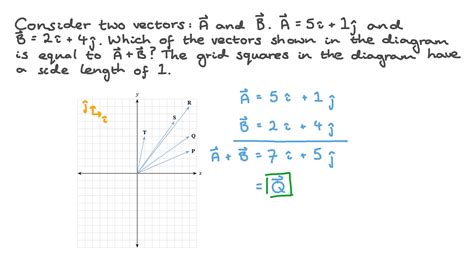 Consider two vectors: A⃗ and B⃗. A⃗ = 5î + 1ĵ and
B⃗ = 2î + 4ĵ. Which of the vectors shown in the diagram
is equal to A⃗ + B⃗? The grid squares in the diagram have
a side length of 1.
ĵ
î
y
R
S
T
Q
P
x
A⃗ = 5î + 1ĵ
B⃗ = 2î + 4ĵ
A⃗ + B⃗ = 7î + 5ĵ
= Q⃗